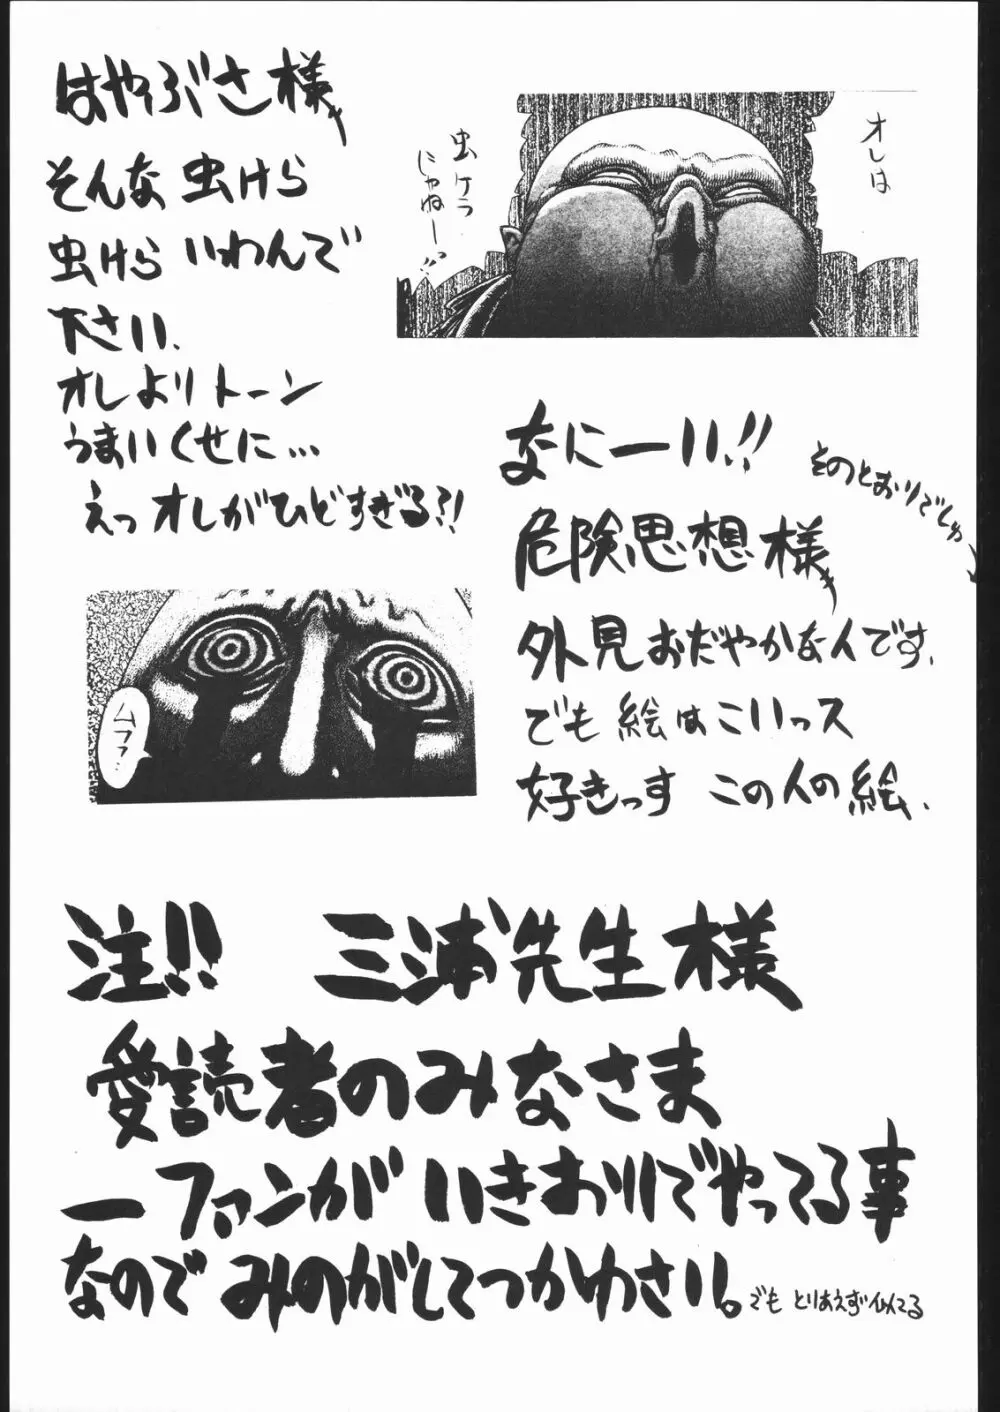 はやぶさ様
そんな虫けら
虫けらいわんで
下さい、
オレよりトーン
うまいくせに…
えっオレがひどすぎる?!
オレは
虫ケラ
じゃねー!!
なにーい!!
そのとおりでしゅ
危険思想様
外見おだやかな人です、
でも絵はこいっス
好きっす この人の絵、
ムファ…
注!! 三浦先生様
愛読者のみなさま
一ファンがいきおいでやってる事
なのでみのがしてつかわさい。
でもとりあえず似てる